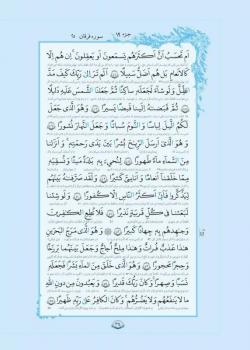 جزء ۱۹ سوره فرقان ۲۵
أَمْ تَحْسَبُ أَنَّ أَكْثَرَهُمْ يَسْمَعُونَ أَوْ يَعْقِلُونَ إِنْ هُمْ إِلَّا
كَالْأَنْعَامِ بَلْ هُمْ أَضَلُّ سَبِيلًا ﴿۴۴﴾ أَلَمْ تَرَ إِلَىٰ رَبِّكَ كَيْفَ مَدَّ
الظِّلَّ وَلَوْ شَاءَ لَجَعَلَهُ سَاكِنًا ثُمَّ جَعَلْنَا الشَّمْسَ عَلَيْهِ دَلِيلًا
﴿۴۵﴾ ثُمَّ قَبَضْنَاهُ إِلَيْنَا قَبْضًا يَسِيرًا ﴿۴۶﴾ وَهُوَ الَّذِي جَعَلَ
لَكُمُ اللَّيْلَ لِبَاسًا وَالنَّوْمَ سُبَاتًا وَجَعَلَ النَّهَارَ نُشُورًا ﴿۴۷﴾
وَهُوَ الَّذِي أَرْسَلَ الرِّيَاحَ بُشْرًا بَيْنَ يَدَيْ رَحْمَتِهِ وَأَنْزَلْنَا
مِنَ السَّمَاءِ مَاءً طَهُورًا ﴿۴۸﴾ لِنُحْيِيَ بِهِ بَلْدَةً مَيْتًا وَنُسْقِيَهُ
مِمَّا خَلَقْنَا أَنْعَامًا وَأَنَاسِيَّ كَثِيرًا ﴿۴۹﴾ وَلَقَدْ صَرَّفْنَاهُ بَيْنَهُمْ
لِيَذَّكَّرُوا فَأَبَىٰ أَكْثَرُ النَّاسِ إِلَّا كُفُورًا ﴿۵۰﴾ وَلَوْ شِئْنَا
لَبَعَثْنَا فِي كُلِّ قَرْيَةٍ نَذِيرًا ﴿۵۱﴾ فَلَا تُطِعِ الْكَافِرِينَ
وَجَاهِدْهُمْ بِهِ جِهَادًا كَبِيرًا ﴿۵۲﴾ وَهُوَ الَّذِي مَرَجَ الْبَحْرَيْنِ
هَٰذَا عَذْبٌ فُرَاتٌ وَهَٰذَا مِلْحٌ أُجَاجٌ وَجَعَلَ بَيْنَهُمَا بَرْزَخًا
وَحِجْرًا مَحْجُورًا ﴿۵۳﴾ وَهُوَ الَّذِي خَلَقَ مِنَ الْمَاءِ بَشَرًا فَجَعَلَهُ
نَسَبًا وَصِهْرًا وَكَانَ رَبُّكَ قَدِيرًا ﴿۵۴﴾ وَيَعْبُدُونَ مِنْ دُونِ اللَّهِ
مَا لَا يَنْفَعُهُمْ وَلَا يَضُرُّهُمْ وَكَانَ الْكَافِرُ عَلَىٰ رَبِّهِ ظَهِيرًا ﴿۵۵﴾